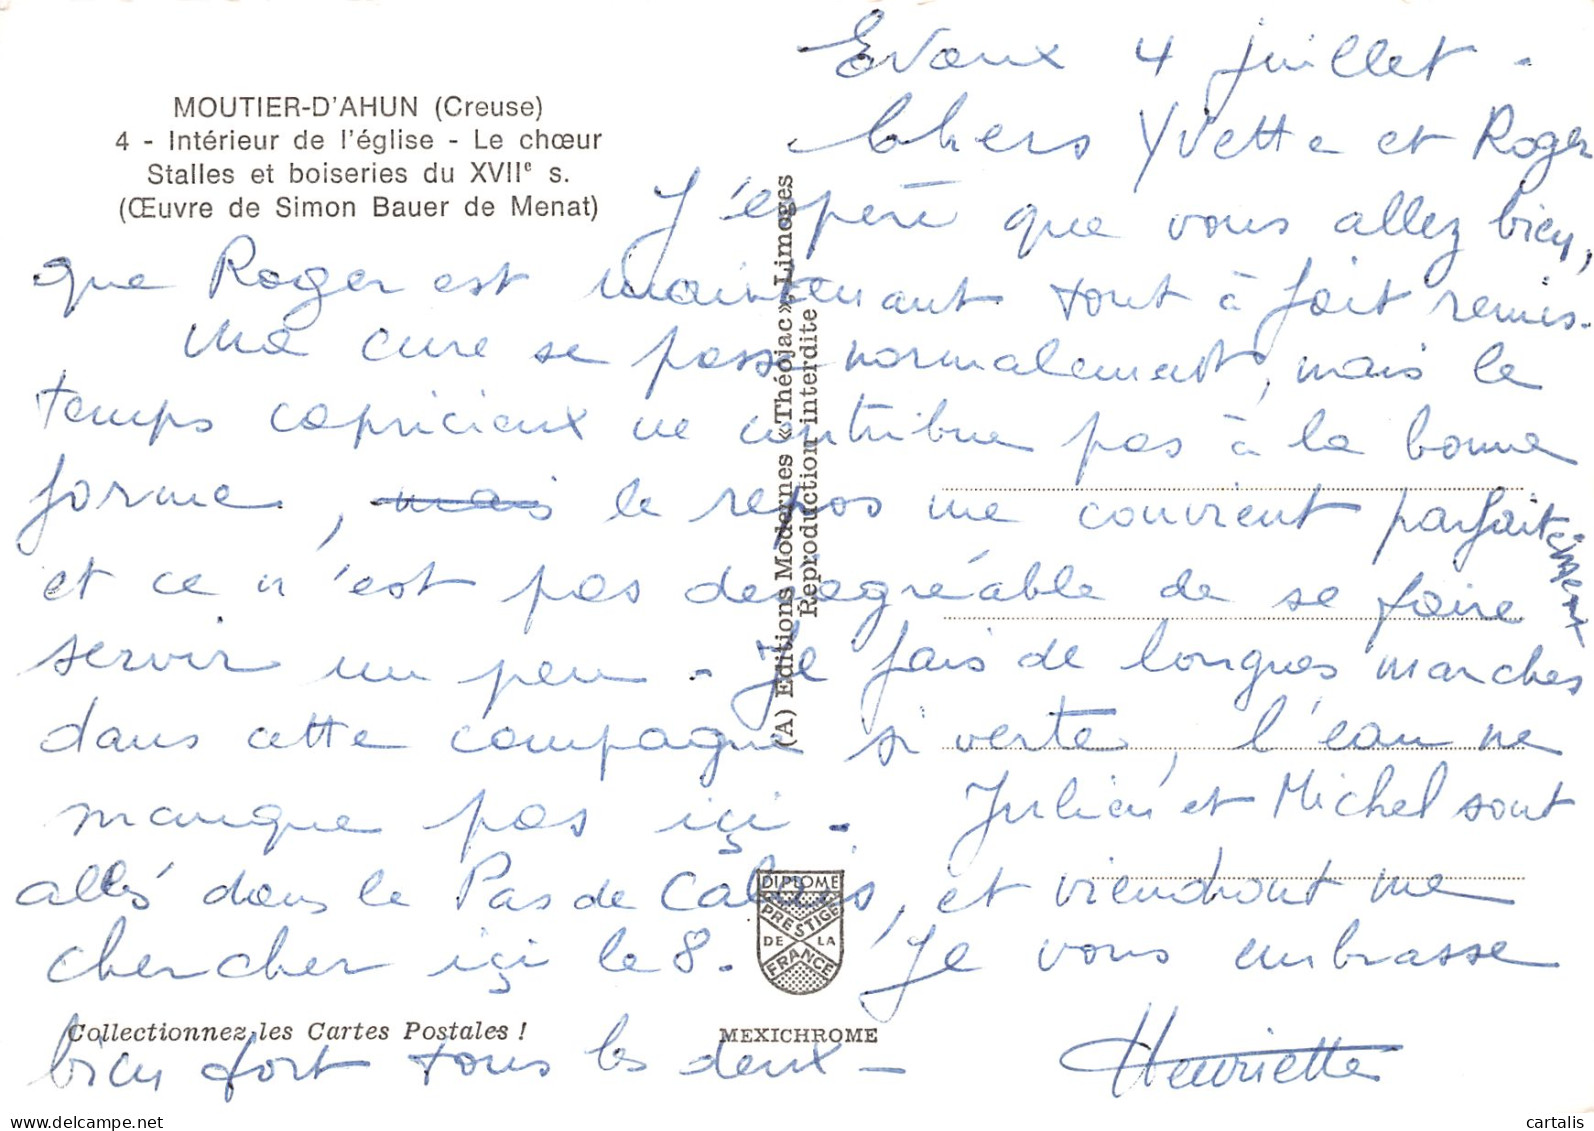 MOUTIER-D'AHUN (Creuse)
4 - Intérieur de l'église - Le chœur
Stalles et boiseries du XVIIe s.
(Œuvre de Simon Bauer de Menat)
Evaux 4 juillet -
Chers Yvette et Roger
J'espère que vous allez bien,
que Roger est maintenant tout à fait remis.
Ma cure se passe normalement, mais le
temps capricieux ne contribue pas à la bonne
forme, mais le repos me convient parfaitement
et ce n'est pas désagréable de se faire
servir un peu - Je fais de longues marches
dans cette campagne si verte, l'eau ne
manque pas içi - Julien et Michel sont
allés dans le Pas de Calais, et viendront me
chercher içi le 8. Je vous embrasse
bien fort tous les deux -
Henriette
(A) Editions Modernes «Théojac», Limoges
Reproduction interdite
DIPLOME
PRESTIGE
DE LA
FRANCE
Collectionnez les Cartes Postales !
MEXICHROME
delcampe.net
cartalis